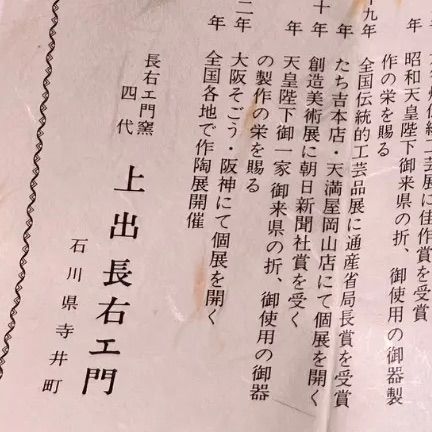 昭和天皇陛下御来県の折、御使用の御器製
作の栄を賜る
十九年
全国伝統的工芸品展に通産省局長賞を受賞
年
たち吉本店・天満屋岡山店にて個展を開く
十年
創造美術展に朝日新聞社賞を受く
年
天皇陛下御一家御来県の折、御使用の御器
の製作の栄を賜る
二年
大阪そごう・阪神にて個展を開く
年
全国各地で作陶展開催
長右エ門窯
四代
上出長右エ門
石川県寺井町